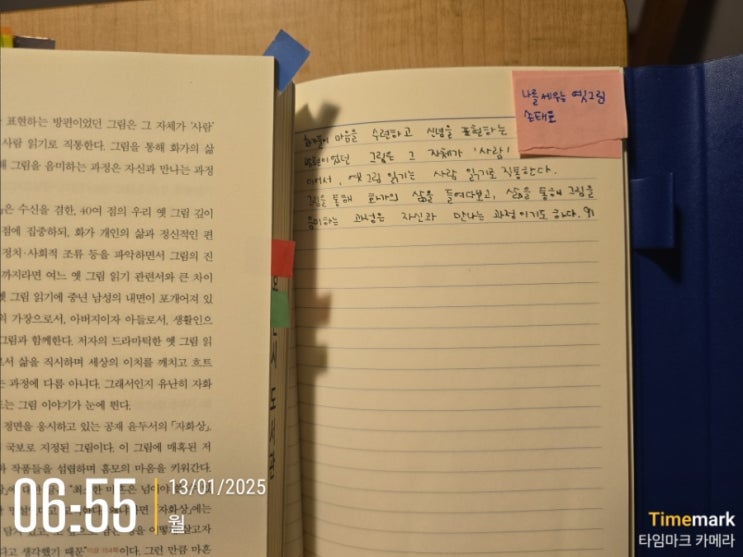 표현하는 방편이었던 그림은 그 자체가 '사람'
사람 읽기로 직통한다. 그림을 통해 화가의 삶
해 그림을 음미하는 과정은 자신과 만나는 과정
은 수신을 겸한, 40여 점의 우리 옛 그림 깊이
점에 집중하되, 화가 개인의 삶과 정신적인 면
정치·사회적 조류 등을 파악하면서 그림의 진
까지라면 여느 옛 그림 읽기 관련서와 큰 차이
옛 그림 읽기에 중년 남성의 내면이 포개어져 있
의 가장으로서, 아버지이자 아들로서, 생활인으
그림과 함께한다. 저자의 드라마틱한 옛 그림 읽
로서 삶을 직시하며 세상의 이치를 깨치고 흐트
는 과정에 다름 아니다. 그래서인지 유난히 자화
또는 그림 이야기가 눈에 띈다.
정면을 응시하고 있는 공재 윤두서의 「자화상」
국보로 지정된 그림이다. 이 그림에 매혹된 저
와 작품들을 섭렵하며 흠모의 마음을 키워간다.
자화상」에는
살고자
다고 생각했기 때문"이다. 그런 만큼 마흔
나를 세우는 옛그림
손태호
화가들이 마음을 수련하고 신념을 표현하는
방편이었던 그림은 그 자체가 '사람'
이어서, 옛 그림 읽기는 사람 읽기로 직통한다.
그림을 통해 화가의 삶을 들여다보고, 삶을 통해 그림을
음미하는 과정은 자신과 만나는 과정이기도 하다. 91
06:55
13/01/2025
월
Timemark
타임마크 카메라